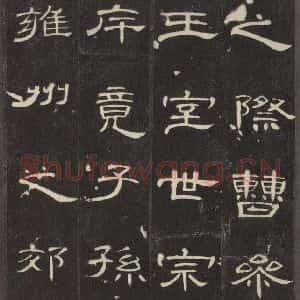 之際曹參
王室世宗
斥竟子孫
雍州之郊
Shufawang.CN